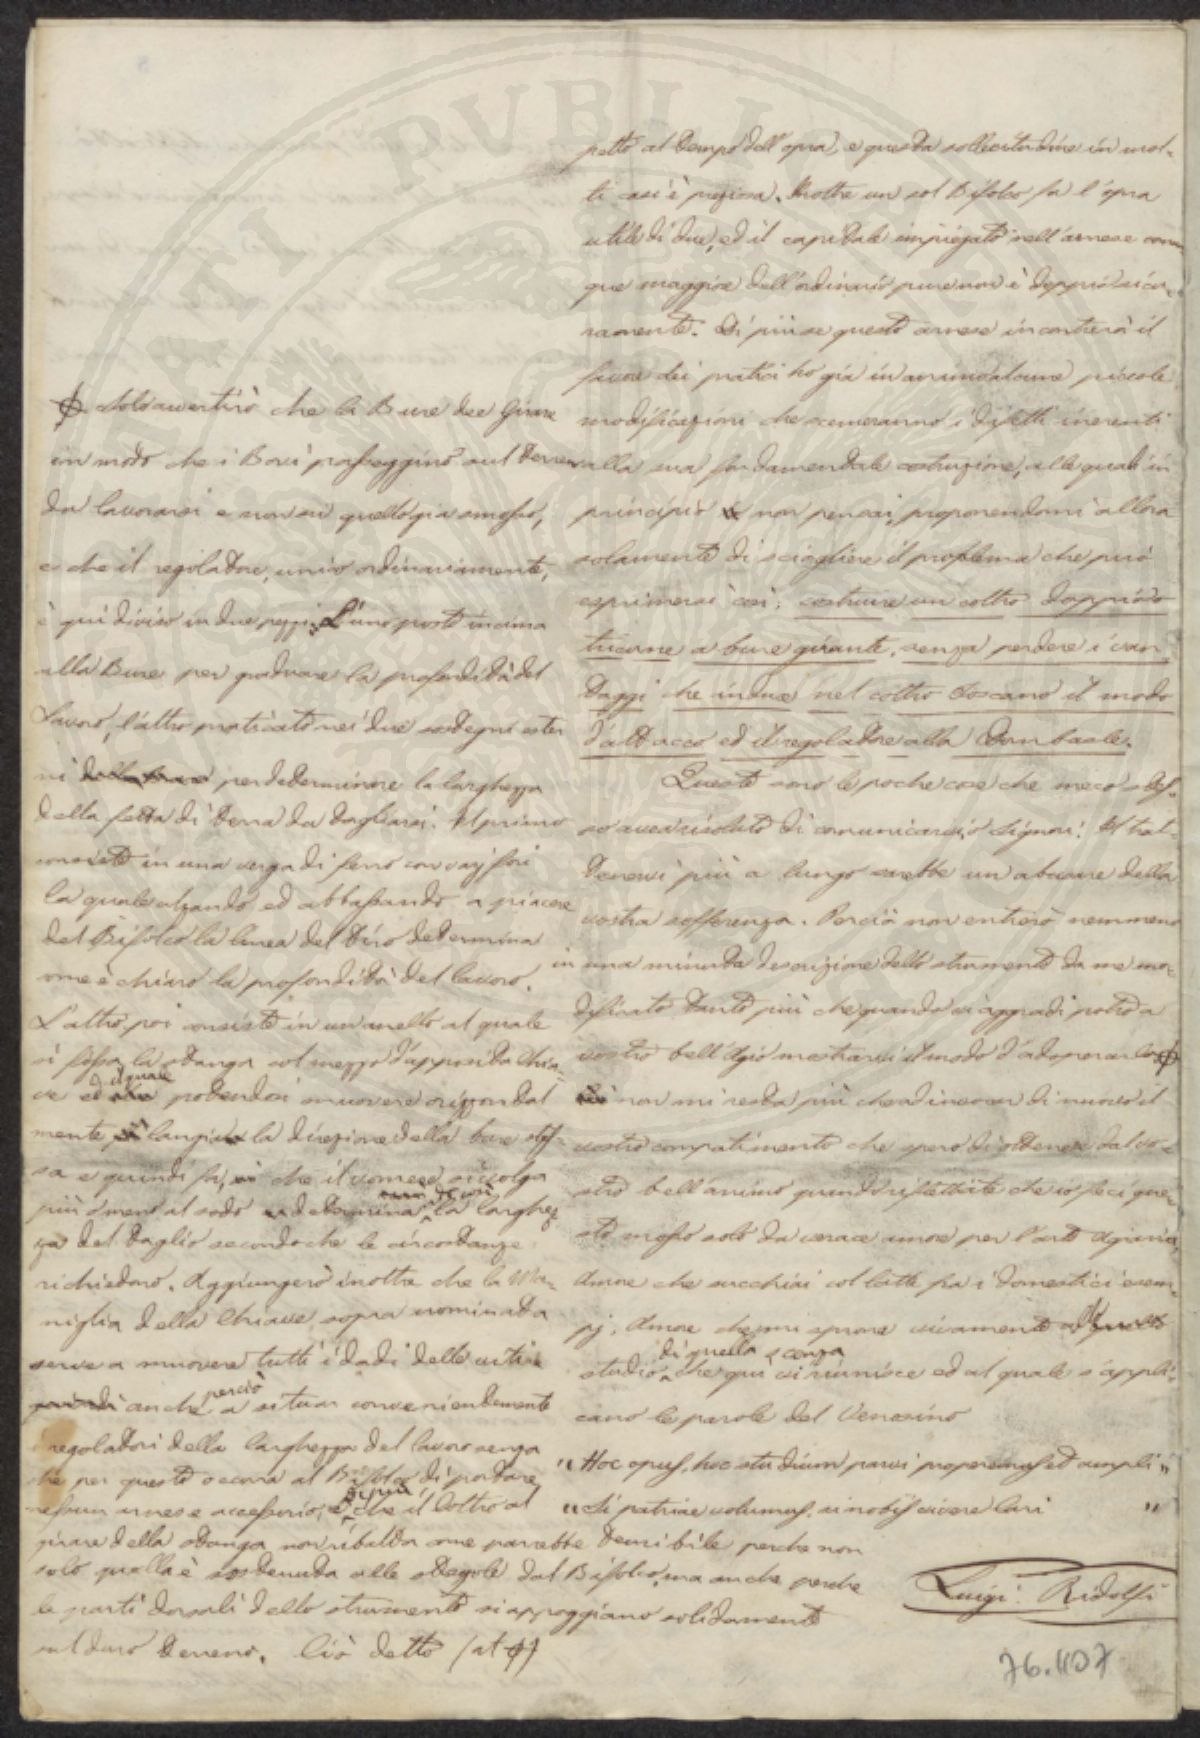 petto al tempo dell'opra, e questa sollecitudine in mol-
ti casi è preziosa. Inoltre un sol Bifolco fa l'opra
utile di due, ed il capitale impiegato nell'arnese comun
que maggiore dell'ordinario pure non è doppio sicu-
ramente. Di più se questo arnese incontrerà il
favore dei pratici ho già in animo alcune piccole
modificazioni che scemeranno i difetti inerenti
alla sua fondamentale costruzione, alle quali in
principio non pensai, proponendomi allora
solamente di sciogliere il problema che può
esprimersi così: costruire un coltro doppio o
tuicune a bure girante, senza perdere i van
taggi che induce nel coltro toscano il modo
d'attacco ed il regolatore alla Dombasle.
Queste sono le poche cose che meco stes-
so avea risoluto di comunicarvi, o Signori: Il trat-
tenervi più a lungo sarebbe un abusare della
vostra sofferenza. Perciò non entrerò nemmeno
in una minuta descrizione dello strumento da me mo-
dificato tanto più che quando vi aggradi potrò a
vostro bell'agio mostrarvi il modo d'adoperarlo ϕ
non mi resta più che ad invocar di nuovo il
vostro compatimento che spero di ottenere dal vo-
stro bell'animo quando riflettiate che io feci que-
sto mosso solo da verace amore per l'arte Agraria,
Amore che succhiai col latte fra i domestici esem-
pj, Amore che mi sprona vivamente allo
studio di quella scenza che qui vi riunisce ed al quale s'appli-
cano le parole del Venosino
"Hoc opus, hoc studium parvi properemus et ampli"
"Si patriae volumus, si nobis vivere cari"
Luigi Ridolfi
76.1107
ϕ Solo avvertirò che la Bure dee girare
in modo che i Bovi passeggino sul terreno
da lavorarsi e non su quello già smosso,
e che il regolatore, unico ordinariamente,
è qui diviso in due pezzi; L'uno posto in cima
alla Bure per graduare la profondità del
Lavoro, l'altro praticato nei due sostegni ester
ni per determinare la larghezza
della fetta di terra da tagliarsi. Il primo
consiste in una verga di ferro con varj fori
la quale alzando ed abbassando a piacere
del Bifolco la linea del tiro determina
come è chiaro la profondità del lavoro.
L'altro poi consiste in un anello al quale
si fissa la stanga col mezzo d'apposita Chia-
ve ed il quale potendosi muovere orizzontal
mente cangia la direzione della bure stes-
sa e quindi fa, che il vomere si volga
più o meno al sodo e determina così la larghez
za del taglio secondo che le circostanze
richiedono. Aggiungerò inoltre che la Ma-
niglia della Chiave sopra nominata
serve a muovere tutti i dadi delle viti e
anche perciò a situar convenientemente
i regolatori della larghezza del lavoro senza
che per questo occorra al Bifolco di portare
nessun arnese accessorio, e di più che il Coltro al
girare della stanga non ribalta come parrebbe temibile perche non
solo quella è sostenuta alle stegole dal Bifolco, ma anche perche
le parti dorsali dello strumento si appoggiano solidamente
sul duro terreno. Ciò detto (al ϕ)